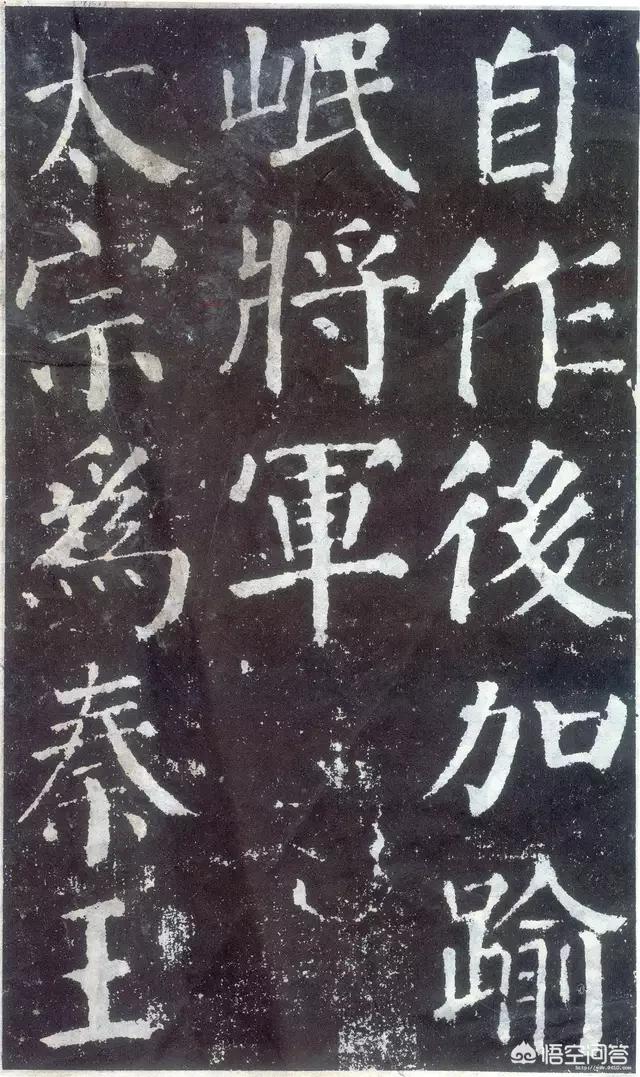 自作後加踰
岷將軍
太宗爲秦王
悟空问答